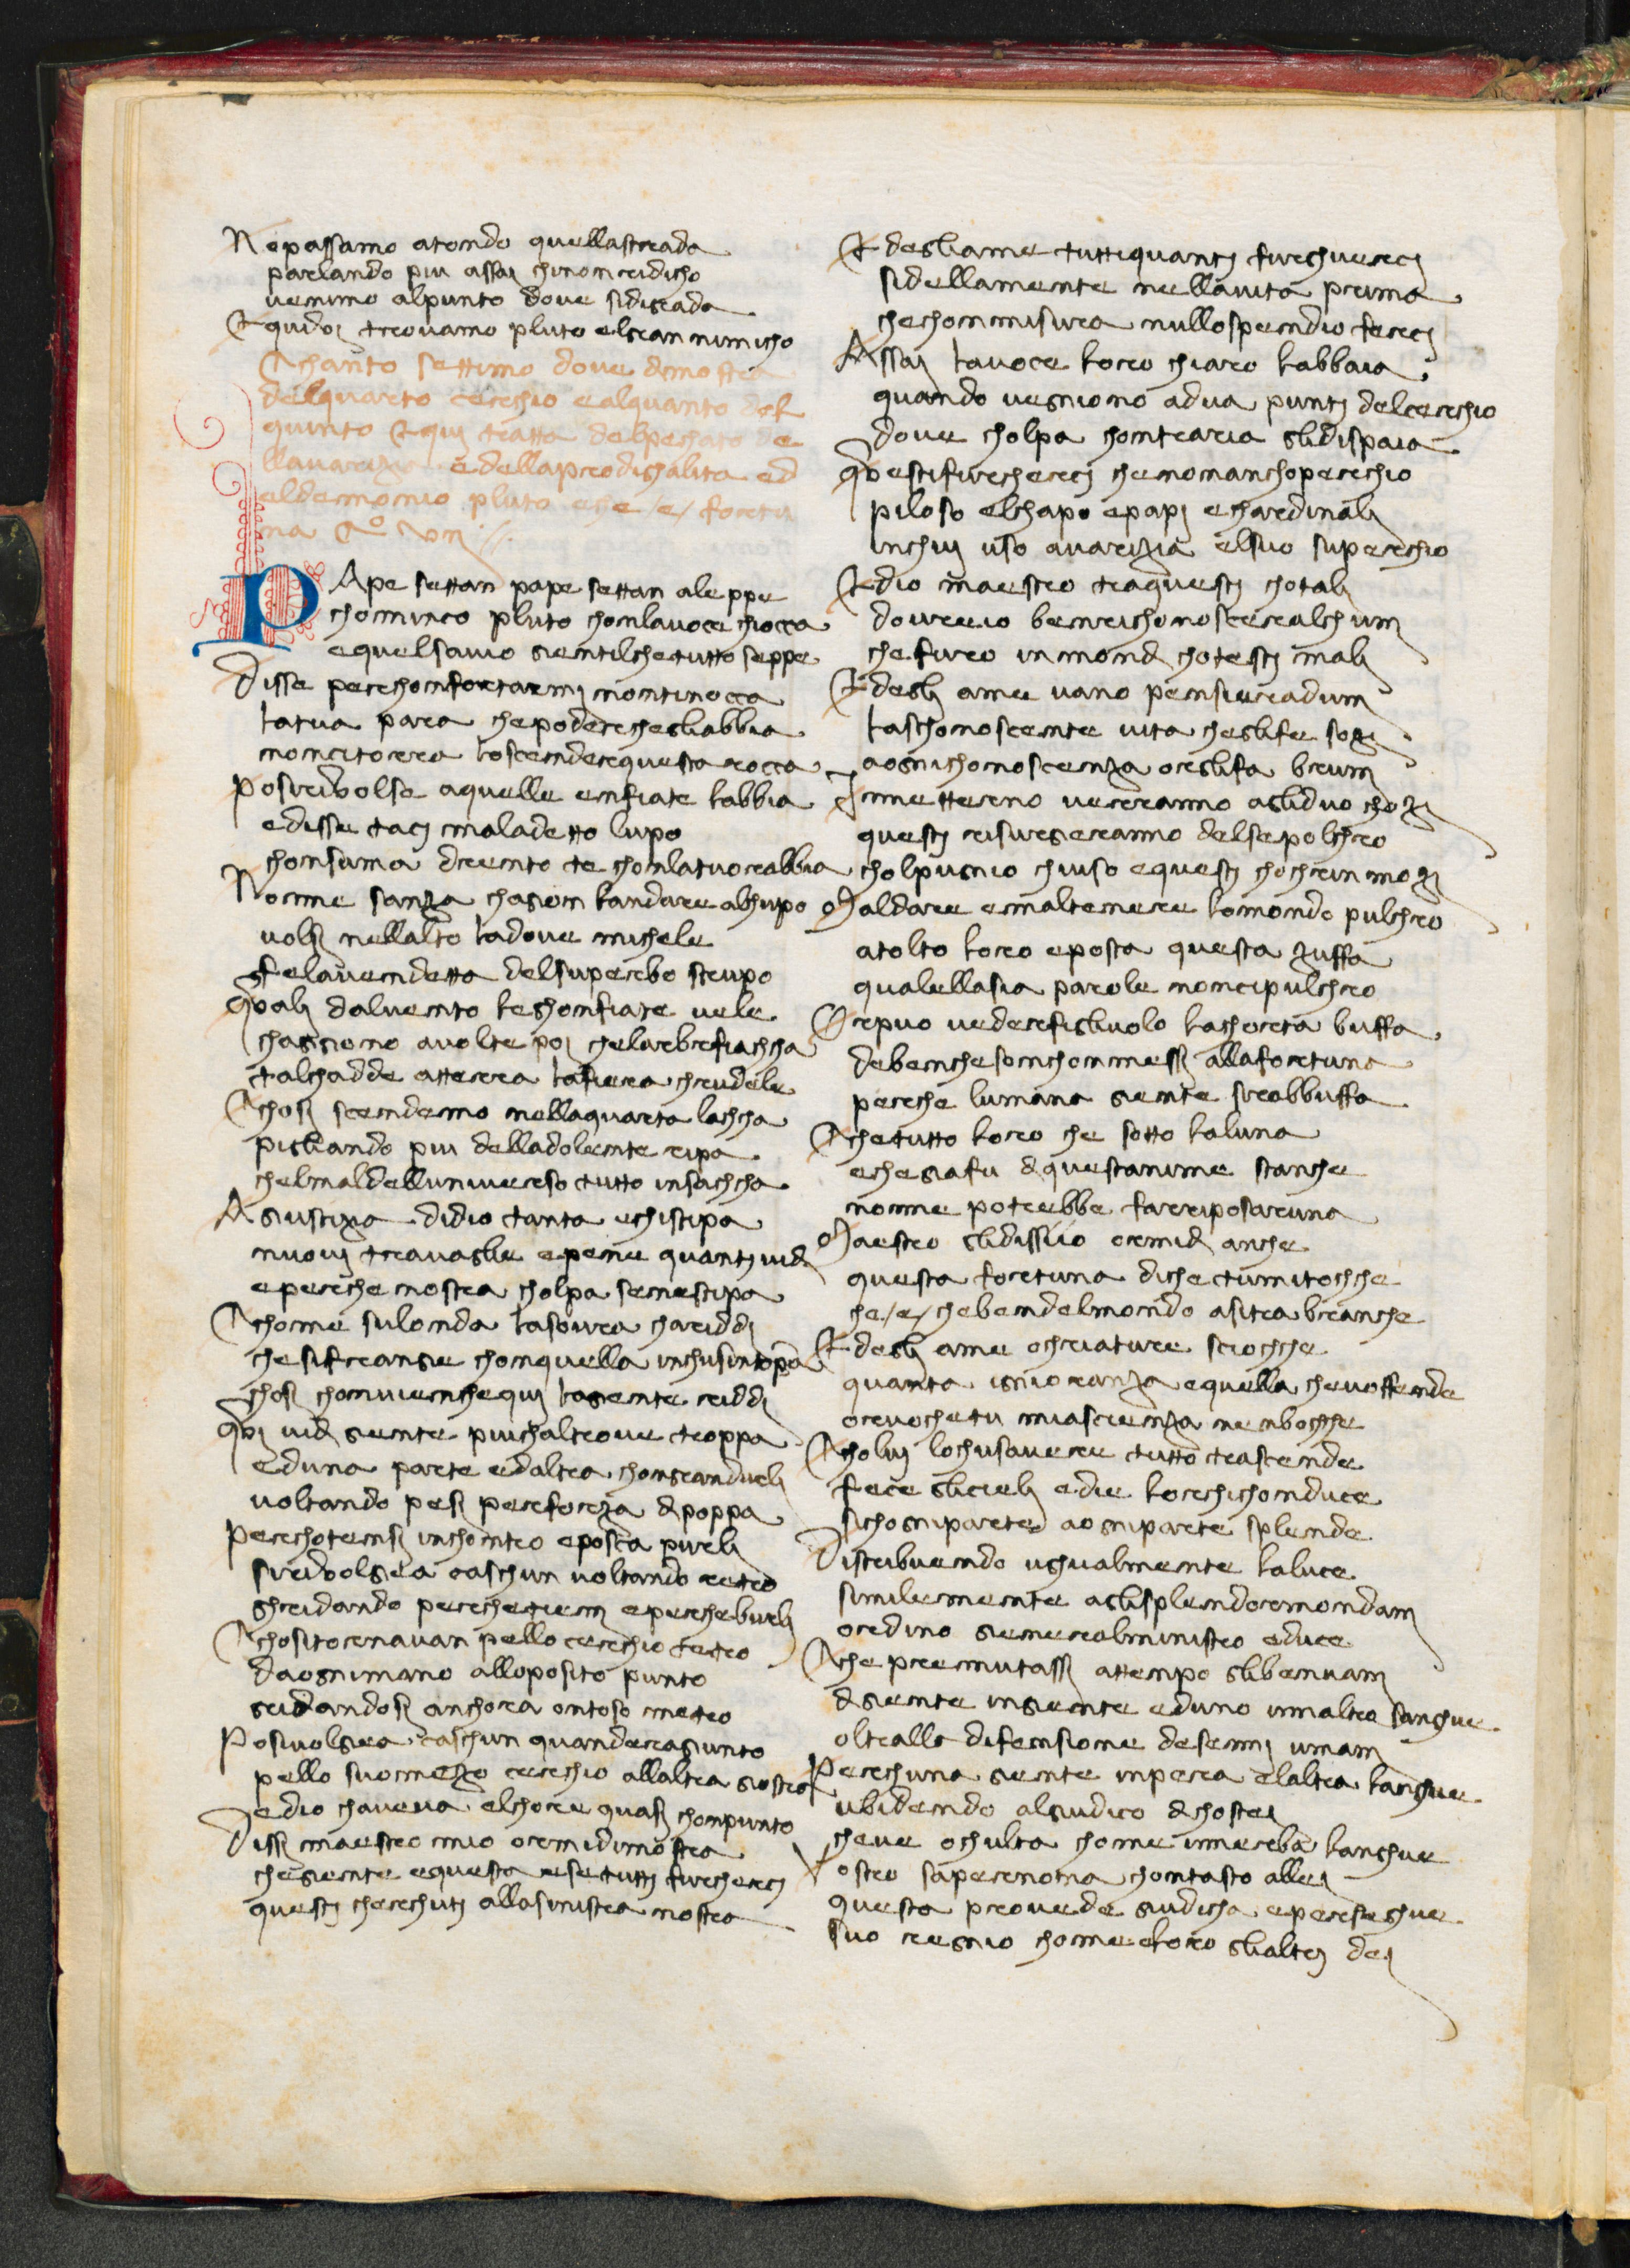 Nepassamo atondo quellastrada
parlando piu assai chinonridicho
venimo alpunto dove sidigrada
Equidoi trovamo pluto elgran nimicho
Chanto settimo dove dimostra
delquarto cerchio ealquanto del
quinto Equi tratta delpechato de
llavarizia edellaprodighalita ed
eldemonio pluto eche /e/ fortu
na Cº VII
PApe sattan pape sattan aleppe
chominco pluto chonlavoce chiocca
equelsavio gentilchetutto seppe
Disse perchonfortarmi nontinocca
latua para chepoderchegliabbia
noncitorra loscenderquesta rocca
Posirivolse aquelle enfiate labbia
edisse taci maladetto lupo
chonsuma drento te chonlatuorabbia
Nonne sanza chagion landare alchupo
volsi nellalto ladove michele
felavendetta delsuperbo strupo
Quali dalvento leghonfiate vele
chaggiono avolte poi chelarbrefiachcha
talchadde atterra lafiera chrudele
Chosi scendemo nellaquarta lachcha
pigliando piu delladolente ripa
chelmaldelluniverso tutto insachcha
A giustizia didio tanta echistipa
nuovi travaglie epene quantividi
eperche nostra cholpa senestipa
Chome sulonda lasovra chariddi
chesifrange chonquella inchusintopa
chosi chonvienchequi lagente riddi
Qui vidi gente piuchaltrove troppa
eduna parte edaltra chongrandurli
voltando pesi perforza di poppa
Perchotensi inchontro eposca purli
sirivolgea caschun voltando retro
ghridando perchetieni eperche burli
Chositornavan pello cerchio tetro
daognimano alloposito punto
gridandosi anchora ontoso metro
Posivolgea caschun quanderagunto
pello suomezo cerchio allaltra giostra
edio chaveva elchore quasi chonpunto
Dissi maestro mio ormidimostra
chegente equesta esetutti furcherci
questi cherchuti allasinistra nostra
Edegliame tuttiquanti furghuerci
sidellamente nellavita prima
chechonmisura nullospendio ferci
Assai lavoce loro chiaro labbaia
quando vegniono adua punti delcerchio
dove cholpa chontraria glidispaia
Questifurcherci chenonanchoperchio
piloso elchapo epapi echardinali
inchui uso avarizia elsuo superchio
Edio maestro traquesti chotali
dovreio benrichonoscerealchuni
chefuro inmondi chotesti mali
Edegli ame vano pensieroaduni
laschonoscente vita cheglife sozi
aognichonoscenza oreglifa bruni
Innetterno verranno aglidue chozi
questi risurgeranno delsepolchro
cholpugnio chiuso equesti chochrinmozi
Maldare emaltenere lomondo pulchro
atolto loro eposta questa zuffa
qualellasia parole noncipulchro
Orpuo vederefigliuolo lachorta buffa
debenchesonchonmessi allafortuna
perche lumana gente sirabbuffa
Chetutto loro che sotto laluna
echegiafu diquestanime stanche
nonne potrebbe farriposaruna
Maestro glidissiio ormidi anche
questa fortuna diche tumitochche
che/e/ chebendelmondo asitra branche
Edegli ame ochriature sciochche
quanta ignioranza equella chevoffende
orvochetu miascienza nenbochche
Cholui lochuisavere tutto trascende
fece glicieli edie lorchichonduce
sichogniparte aogniparte splende
Distribuendo ughualmente laluce
similemente aglisplendormondani
ordino generalministro educe
Che premutassi attenpo glibenvani
digente ingente eduno innaltro sangue
oltralla difensione desenni umani
Perchuna gente inpera elaltra langhue
ubidendo algiudico dichostei
cheve ochulto chome innerba langhue
Vostro sapernona chontasto allei
questa provede giudicha epersieghue
suo regnio chomeeloro glialtri dei